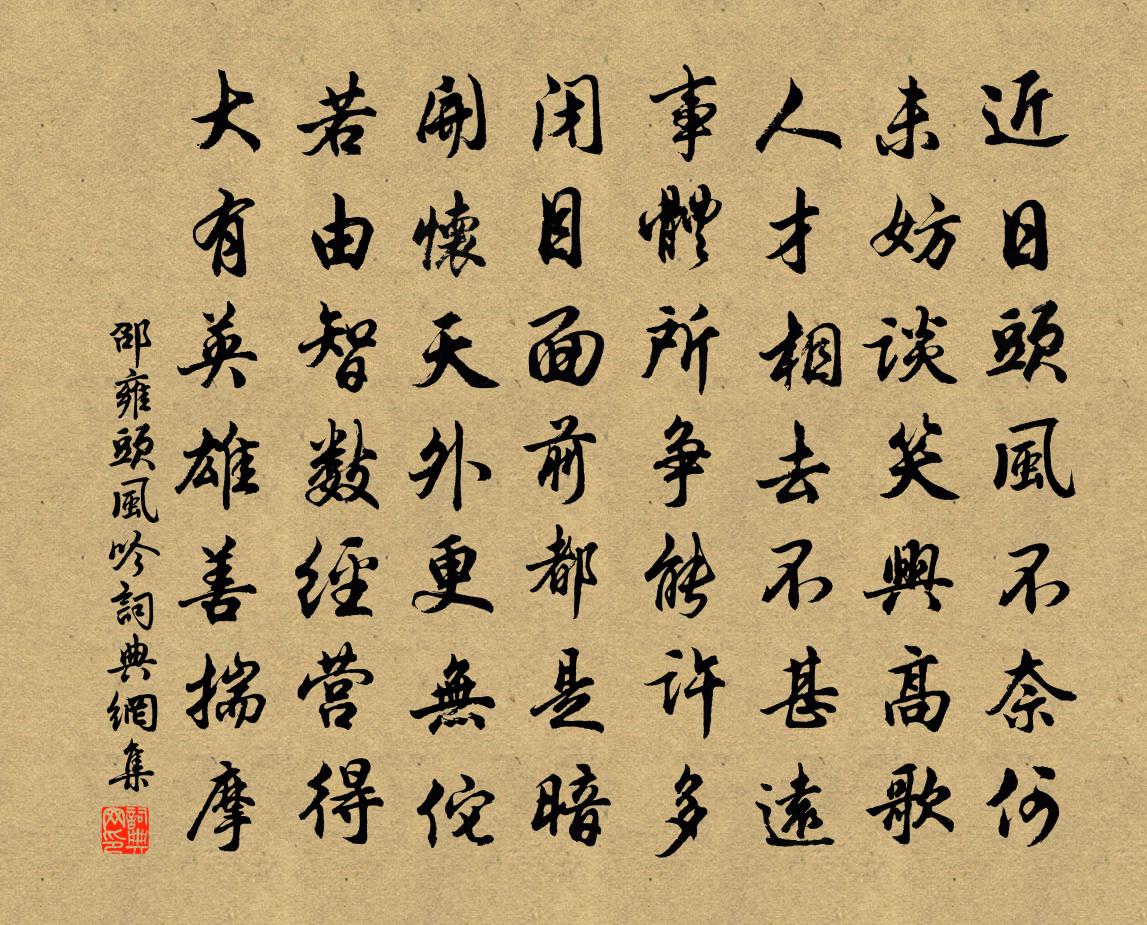 近日頭風不奈何
未妨談笑與高歌
人才相去不甚遠
事體所争能許多
闭目面前都是暗
開懷天外更無佗
若由智數經营得
大有英雄善揣摩
邵雍頭風吟詞典網集
詞典网印